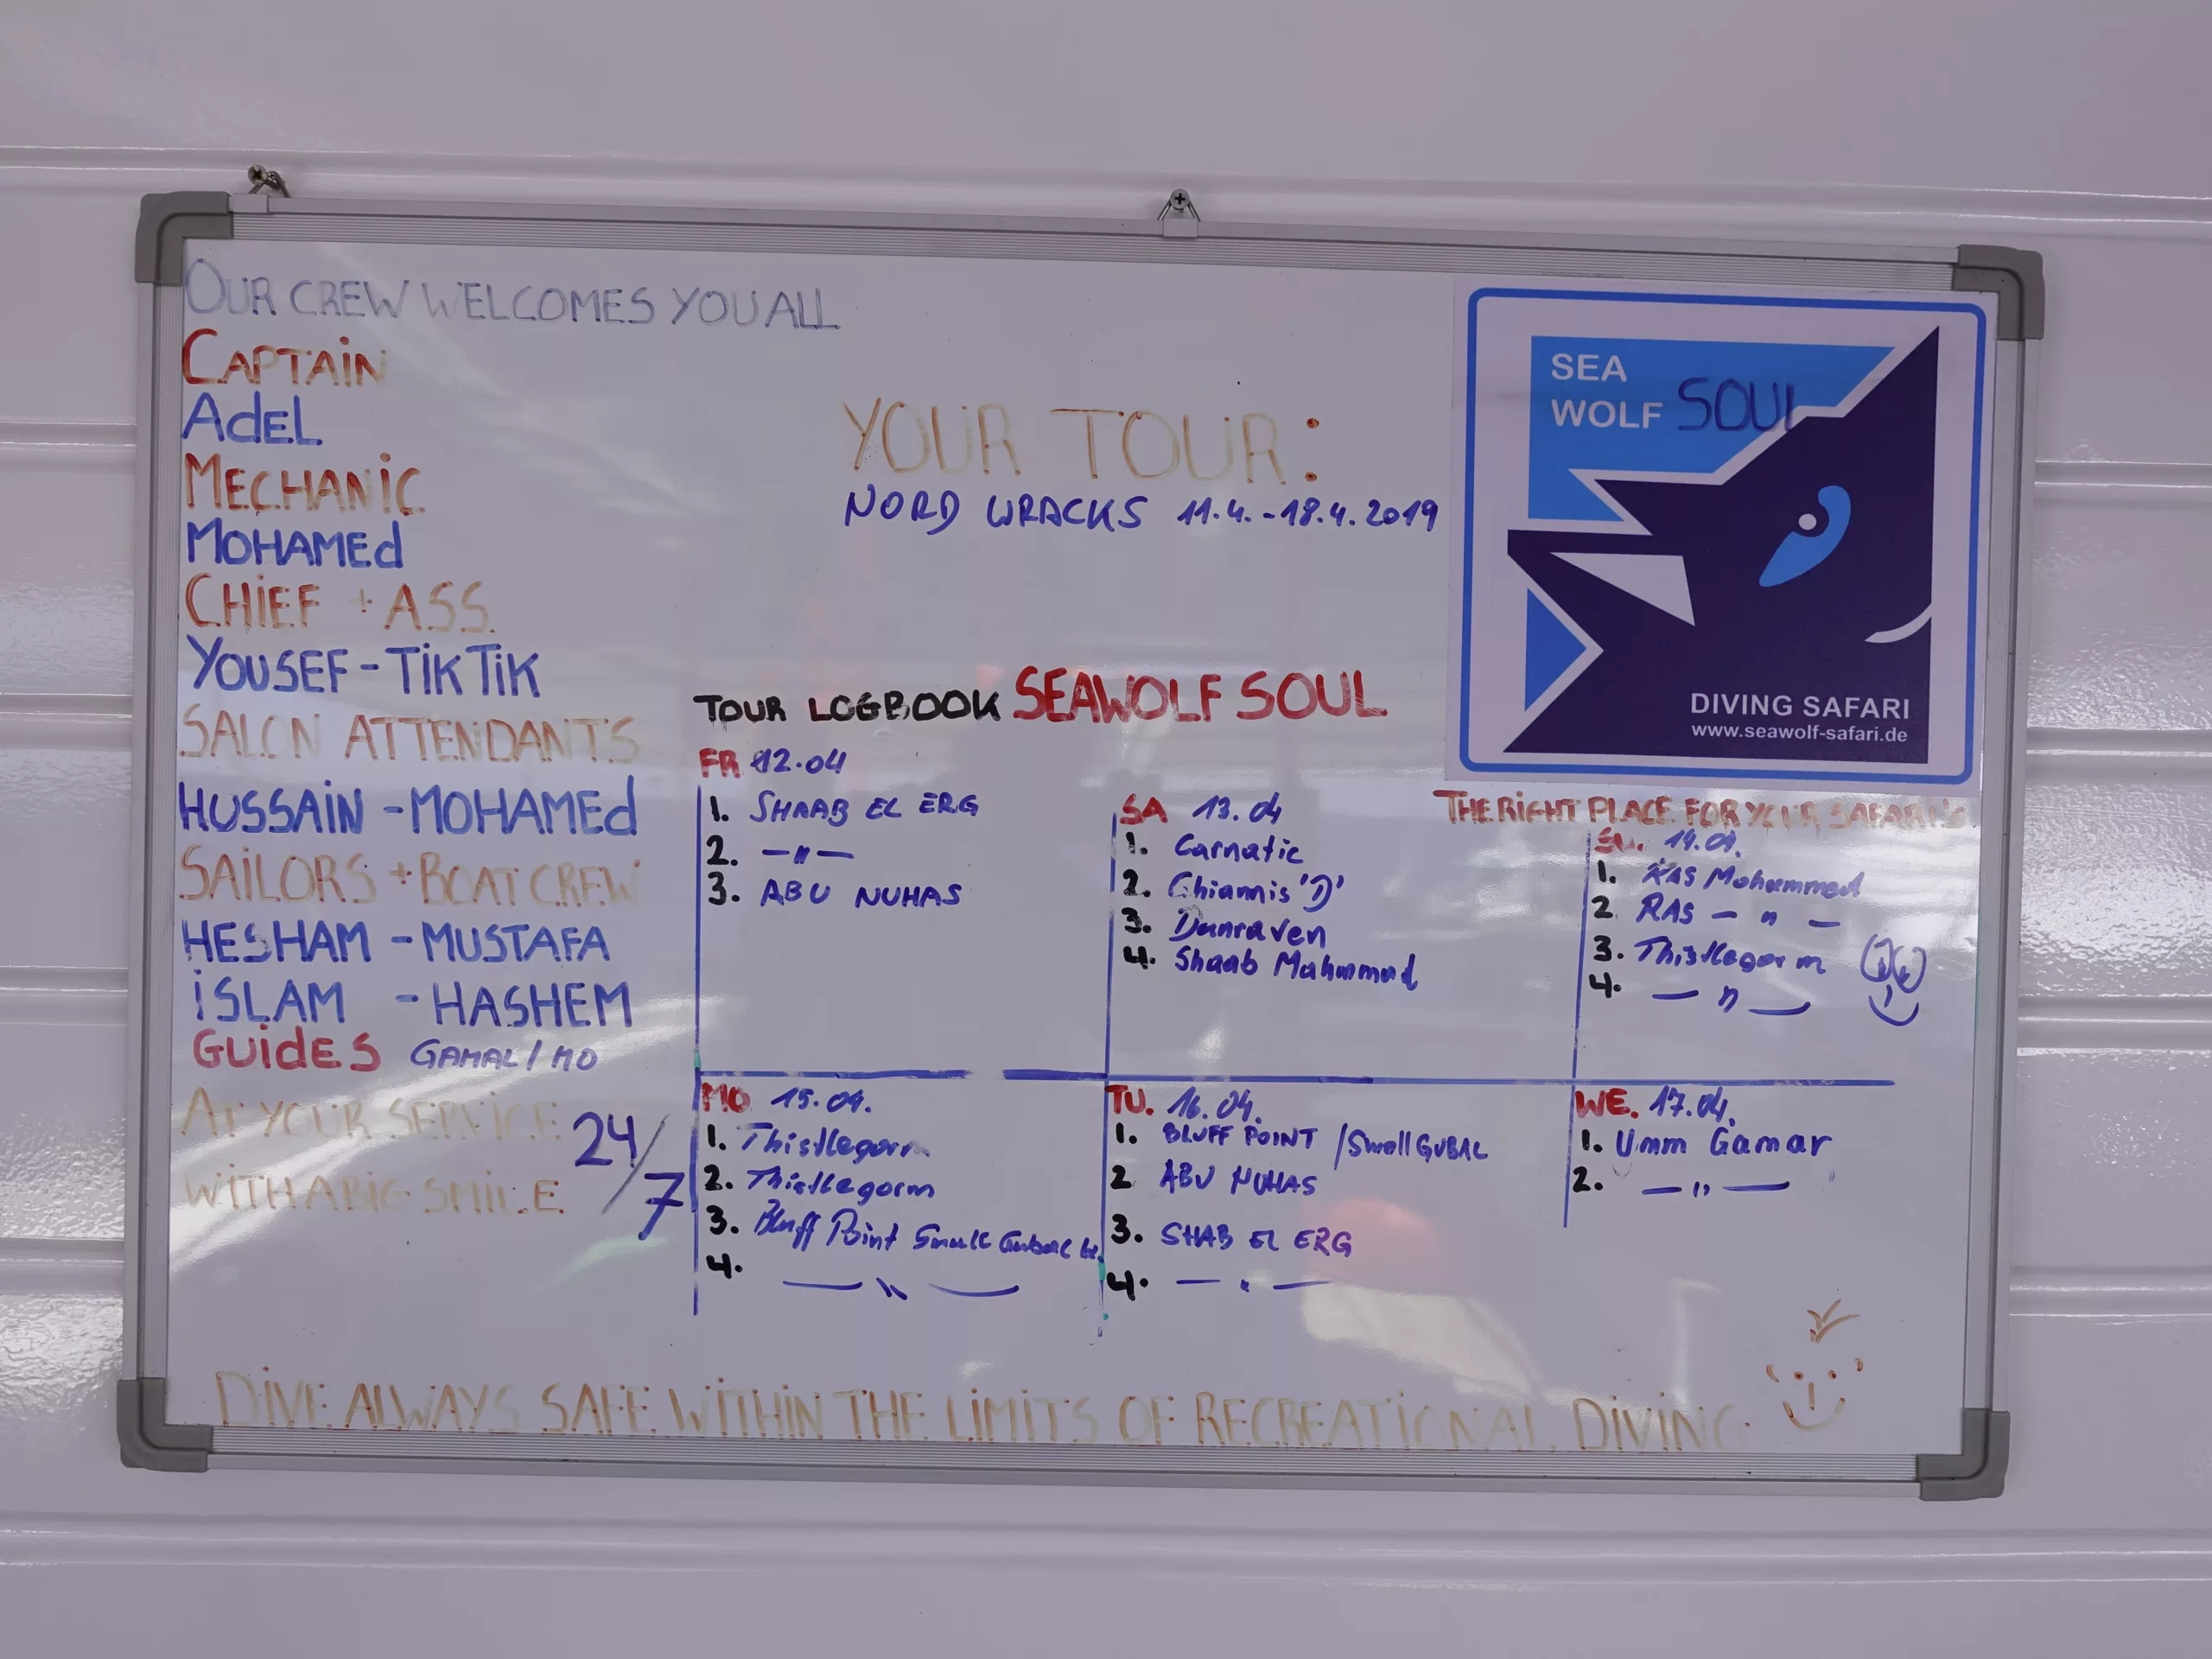 OUR CREW WELCOMES YOU ALL
CAPTAIN
ADEL
MECHANIC
MOHAMEd
CHIEF + ASS.
YOUSEF - TIKTIK
SALON ATTENDANTS
HUSSAIN - MOHAMEd
SAILORS + BOAT CREW
HESHAM - MUSTAFA
ISLAM - HASHEM
GUIDES GAMAL / MO
AT YOUR SERVICE 24/7
WITH A BIG SMILE
YOUR TOUR:
NORD WRACKS 11.4. - 18.4. 2019
SEA
WOLF SOUL
DIVING SAFARI
www.seawolf-safari.de
THE RIGHT PLACE FOR YOUR SAFARI
TOUR LOGBOOK SEAWOLF SOUL
FR 12.04
1. SHAAB EL ERG
2. — " —
3. ABU NUHAS
SA 13.04
1. Carnatic
2. Ghiannis 'D'
3. Dunraven
4. Shaab Mahmmud
SU. 14.04.
1. RAS Mohammed
2. RAS — " —
3. Thistlegorm
4. — " —
MO 15.04.
1. Thistlegorm
2. Thistlegorm
3. Bluff Point Small Gubal
4. — " —
TU. 16.04.
1. BLUFF POINT / Small GUBAL
2 ABU NUHAS
3. SHAB EL ERG
4. — " —
WE. 17.04.
1. Umm Gamar
2. — " —
DIVE ALWAYS SAFE WITHIN THE LIMITS OF RECREATIONAL DIVING